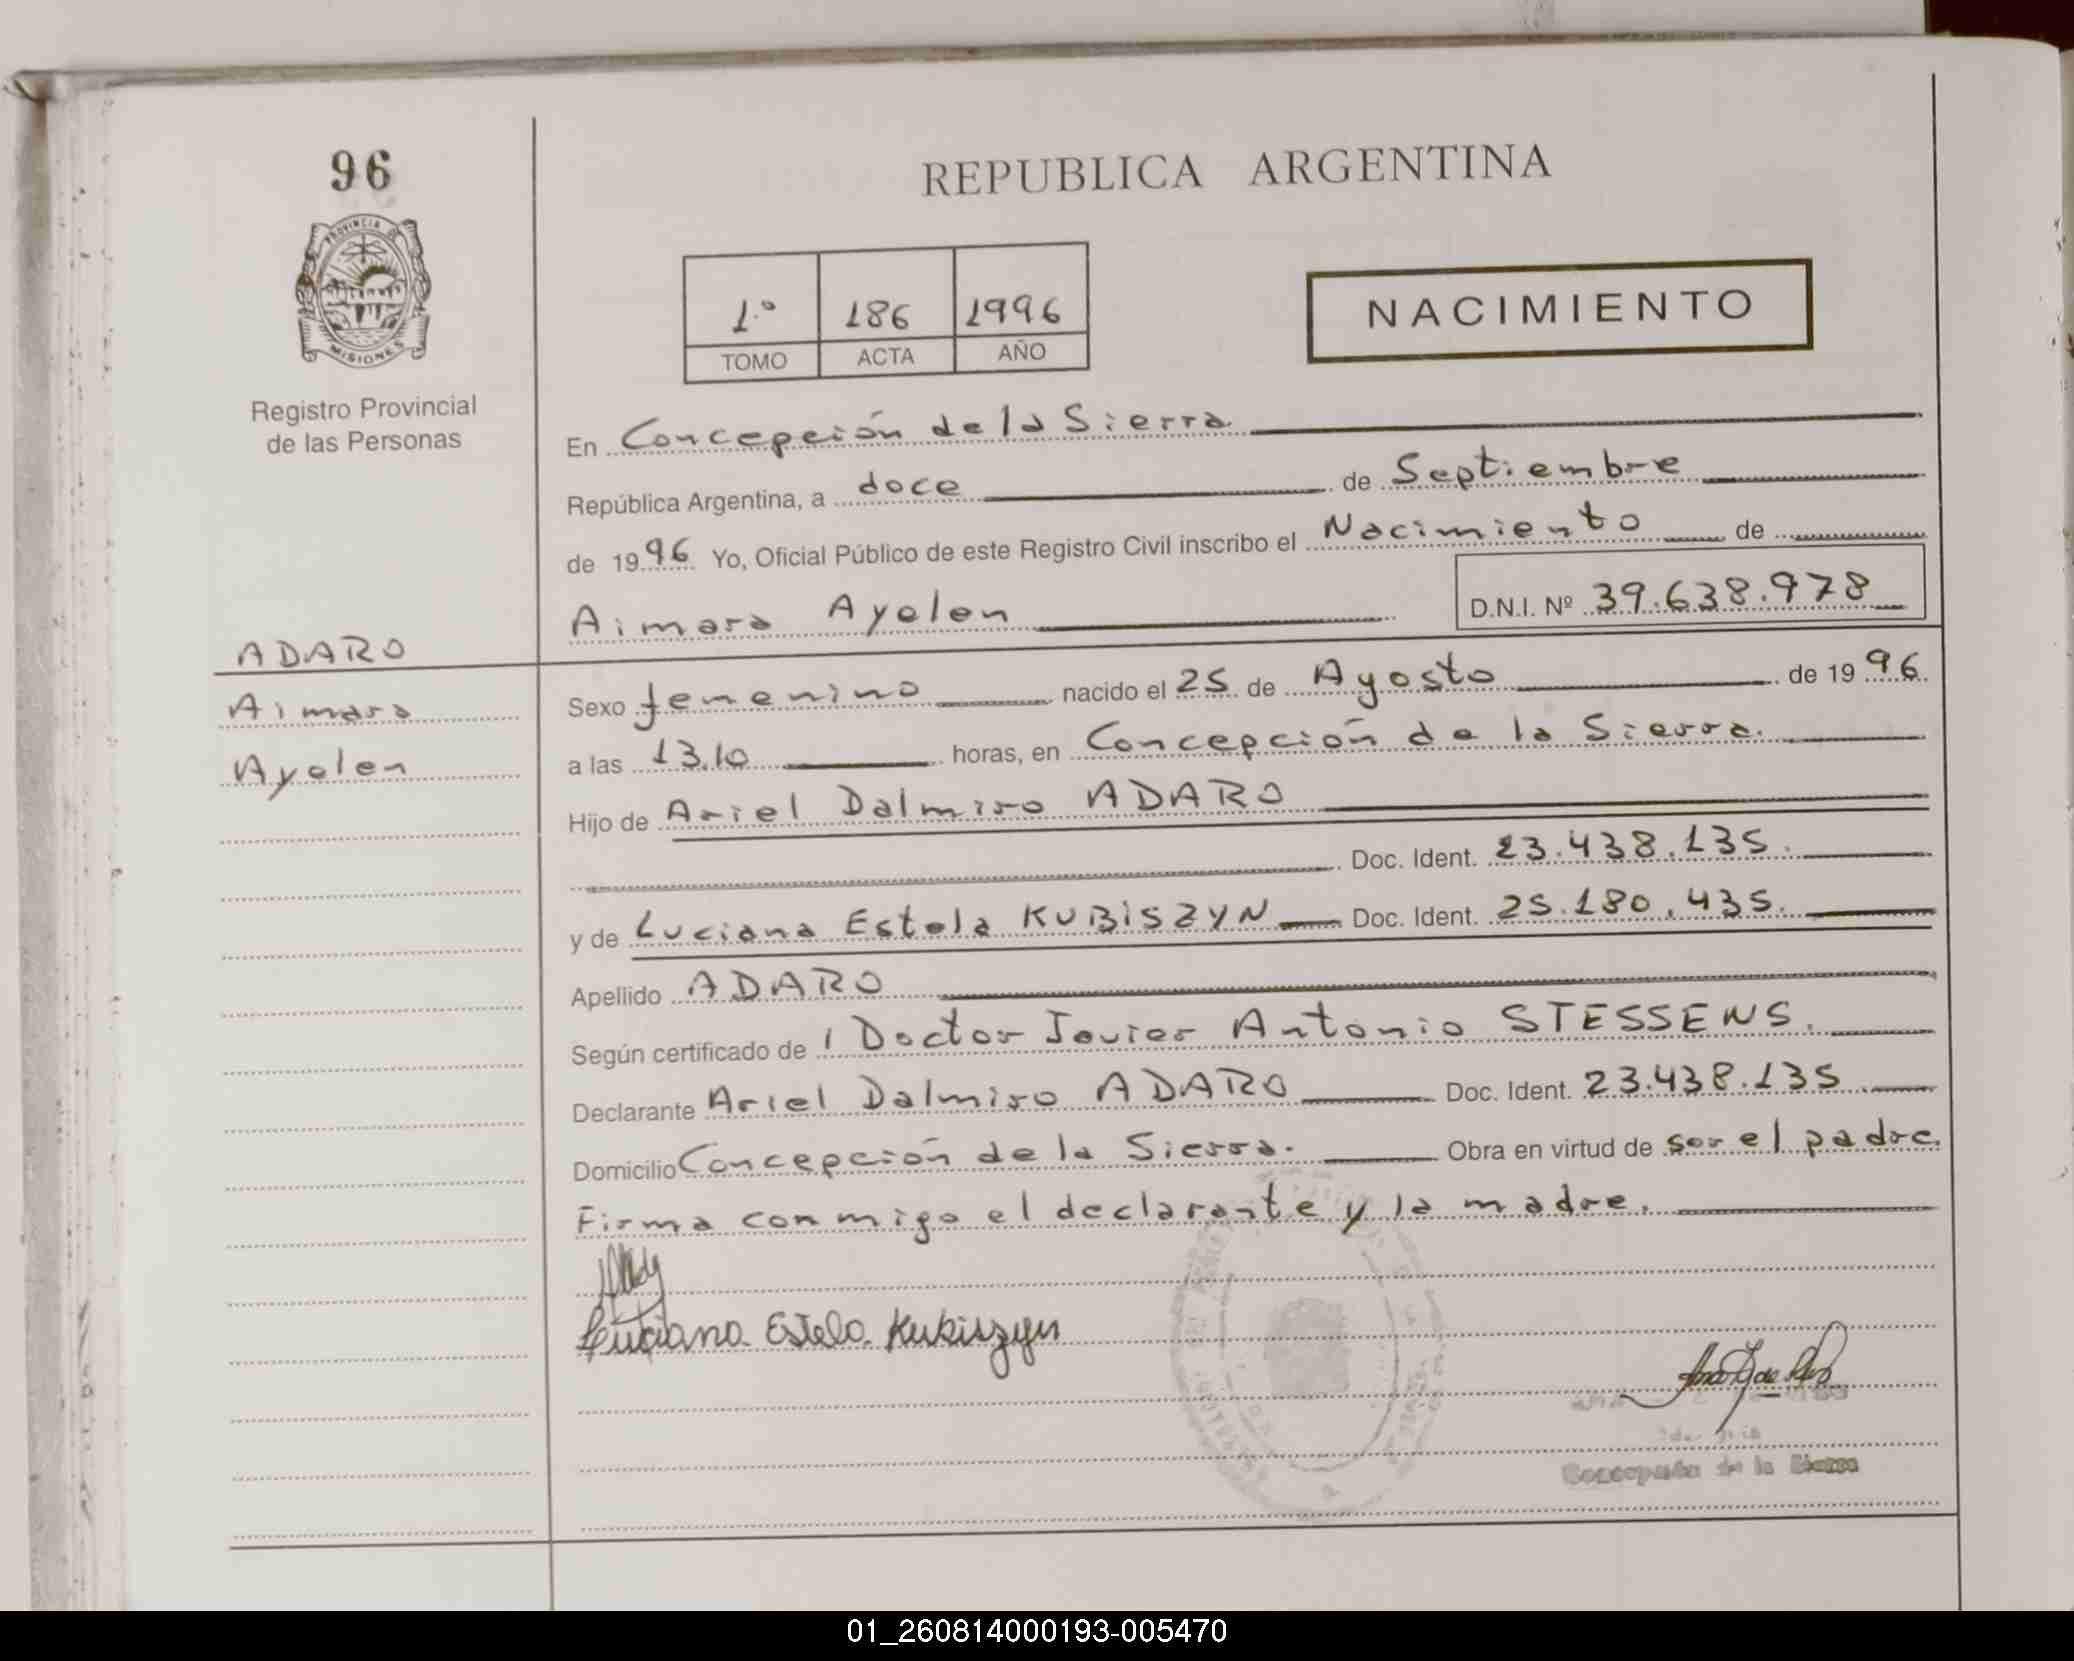 96
PROVINCIA DE
MISIONES
Registro Provincial
de las Personas
REPUBLICA ARGENTINA
1.º 186 1996
TOMO ACTA AÑO
NACIMIENTO
En Concepción de la Sierra
República Argentina, a doce de Septiembre
de 1996 Yo, Oficial Público de este Registro Civil inscribo el Nacimiento de
Aimara Ayelen D.N.I. Nº 39.638.978
ADARO
Aimara
Ayelen
Sexo femenino nacido el 25 de Agosto de 1996
a las 13.10 horas, en Concepción de la Sierra.
Hijo de Ariel Dalmiro ADARO
Doc. Ident. 23.438.135.
y de Luciana Estela KUBISZYN Doc. Ident. 25.180.435.
Apellido ADARO
Según certificado de l Doctor Javier Antonio STESSENS.
Declarante Ariel Dalmiro ADARO Doc. Ident. 23.438.135
Domicilio Concepción de la Sierra. Obra en virtud de ser el padre.
Firma conmigo el declarante y la madre.
Luciana Estela Kubiszyn
Concepción de la Sierra
01_260814000193-005470